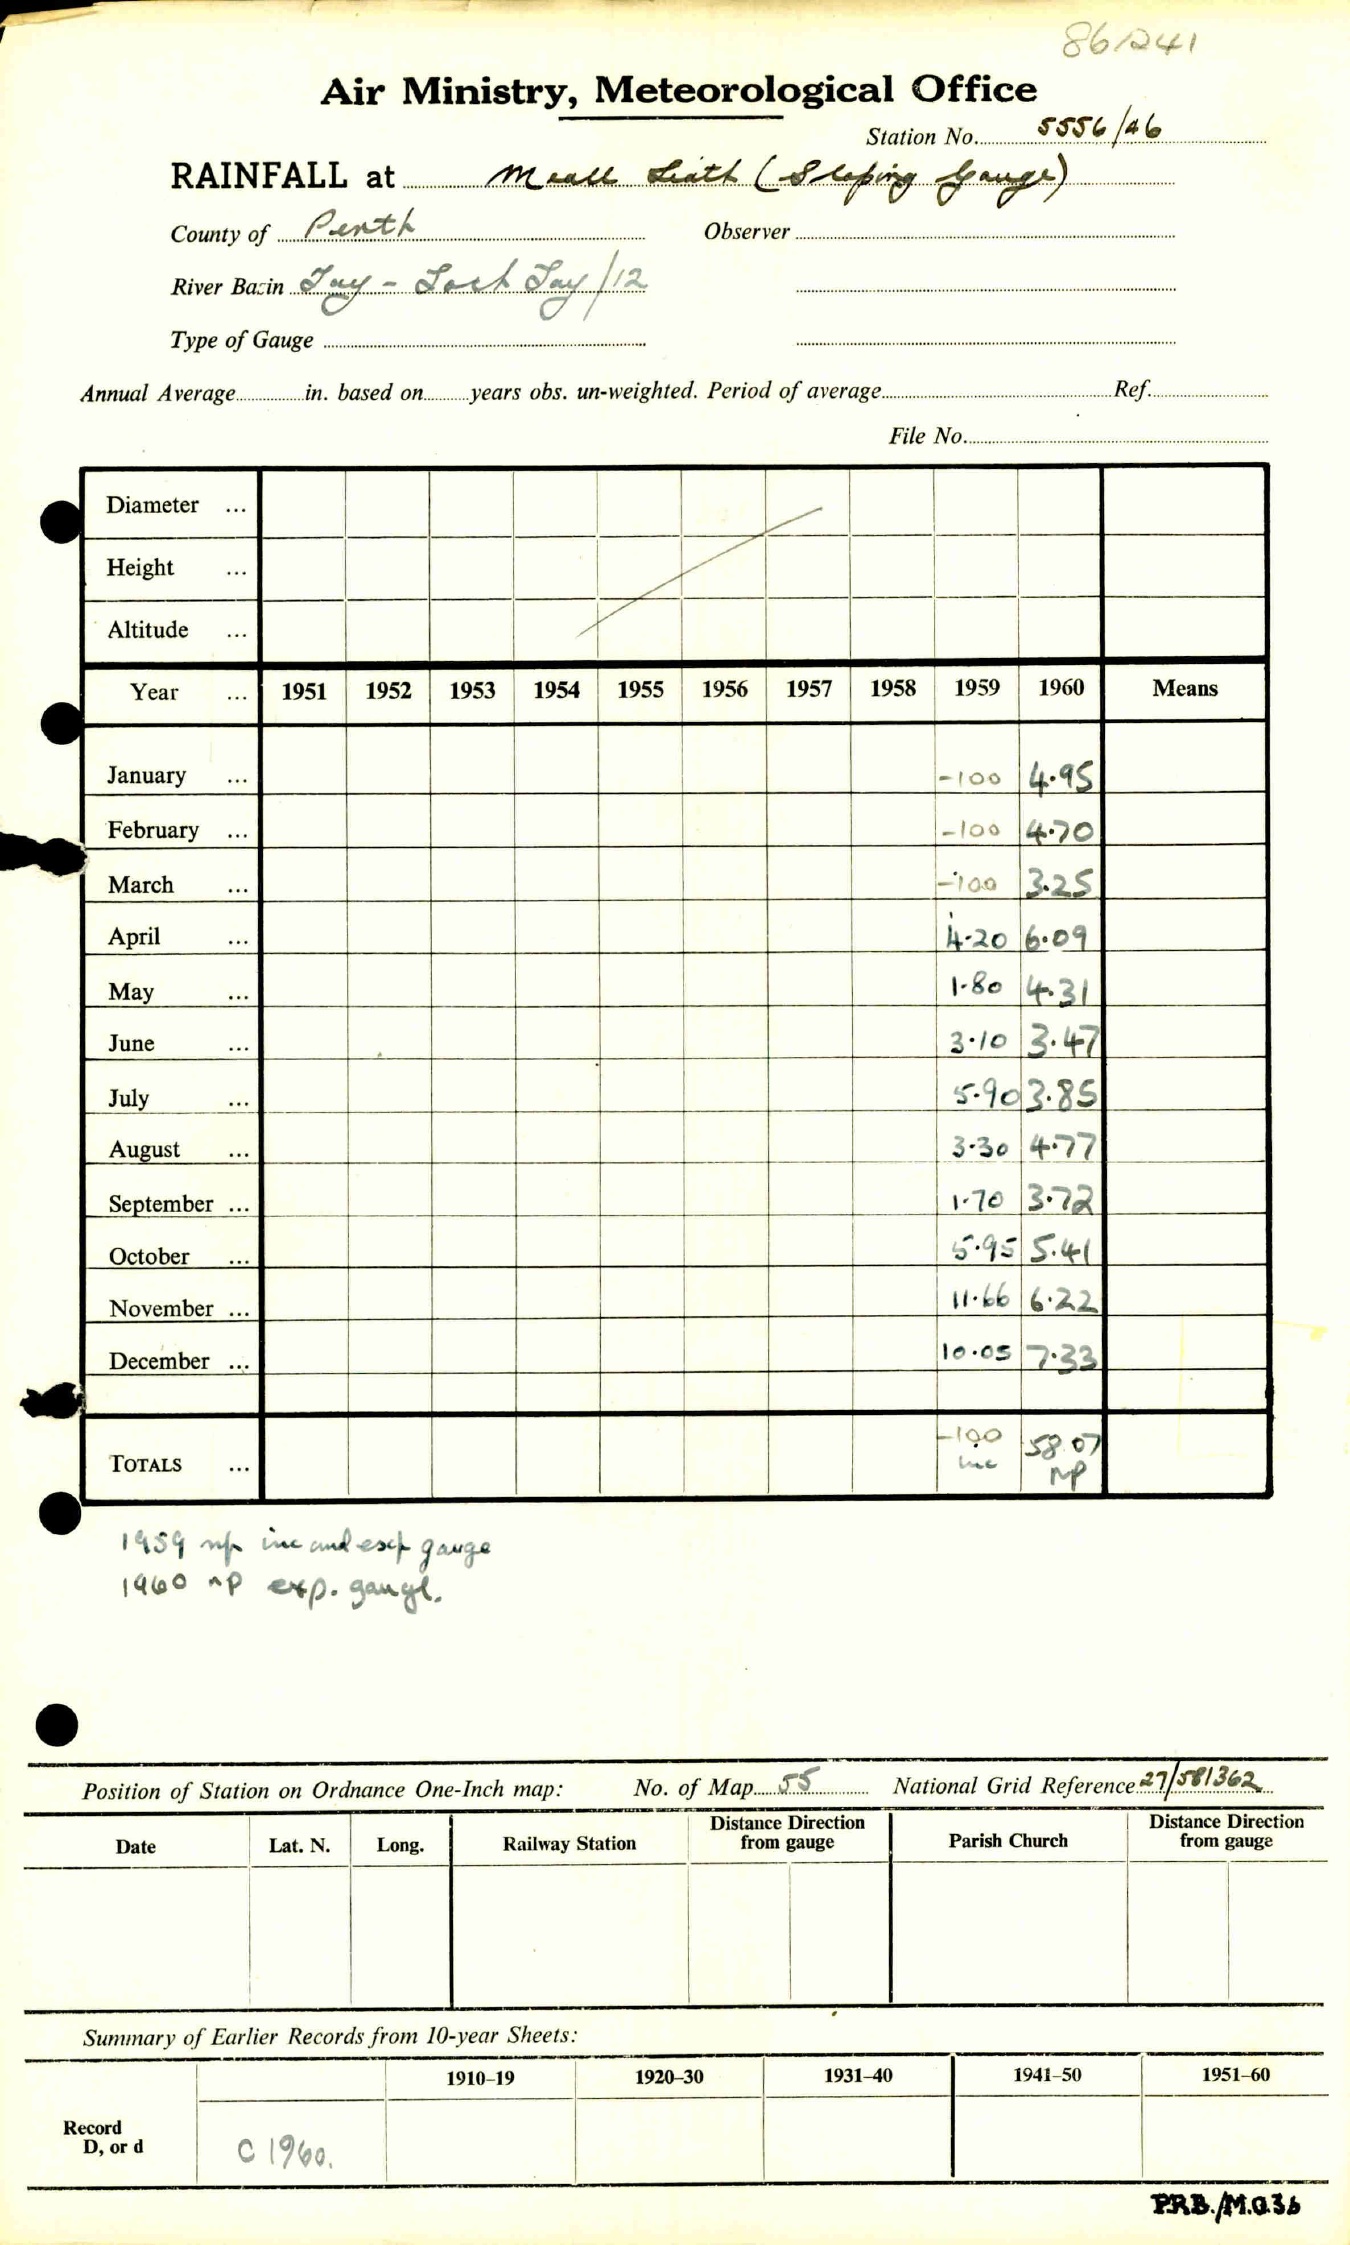 86/241
Air Ministry, Meteorological Office
Station No. 5556/46
RAINFALL at Meall Liath (Sloping Gauge)
County of Perth Observer
River Basin Tay - Loch Tay/12
Type of Gauge
Annual Average in. based on years obs. un-weighted. Period of average Ref.
File No.
Diameter ...
Height ...
Altitude ...
Year ... 1951 1952 1953 1954 1955 1956 1957 1958 1959 1960 Means
January ... -100 4.95
February ... -100 4.70
March ... -100 3.25
April ... 4.20 6.09
May ... 1.80 4.31
June ... 3.10 3.47
July ... 5.90 3.85
August ... 3.30 4.77
September ... 1.70 3.72
October ... 5.95 5.41
November ... 11.66 6.22
December ... 10.05 7.33
TOTALS ... -100 58.07
inc np
1959 np inc and exp gauge
1960 np exp. gauge.
Position of Station on Ordnance One-Inch map: No. of Map 55 National Grid Reference 27/581362
Date Lat. N. Long. Railway Station Distance Direction from gauge Parish Church Distance Direction from gauge
Summary of Earlier Records from 10-year Sheets:
1910–19 1920–30 1931–40 1941–50 1951–60
Record
D, or d C 1960.
P.R.B./M.O.36